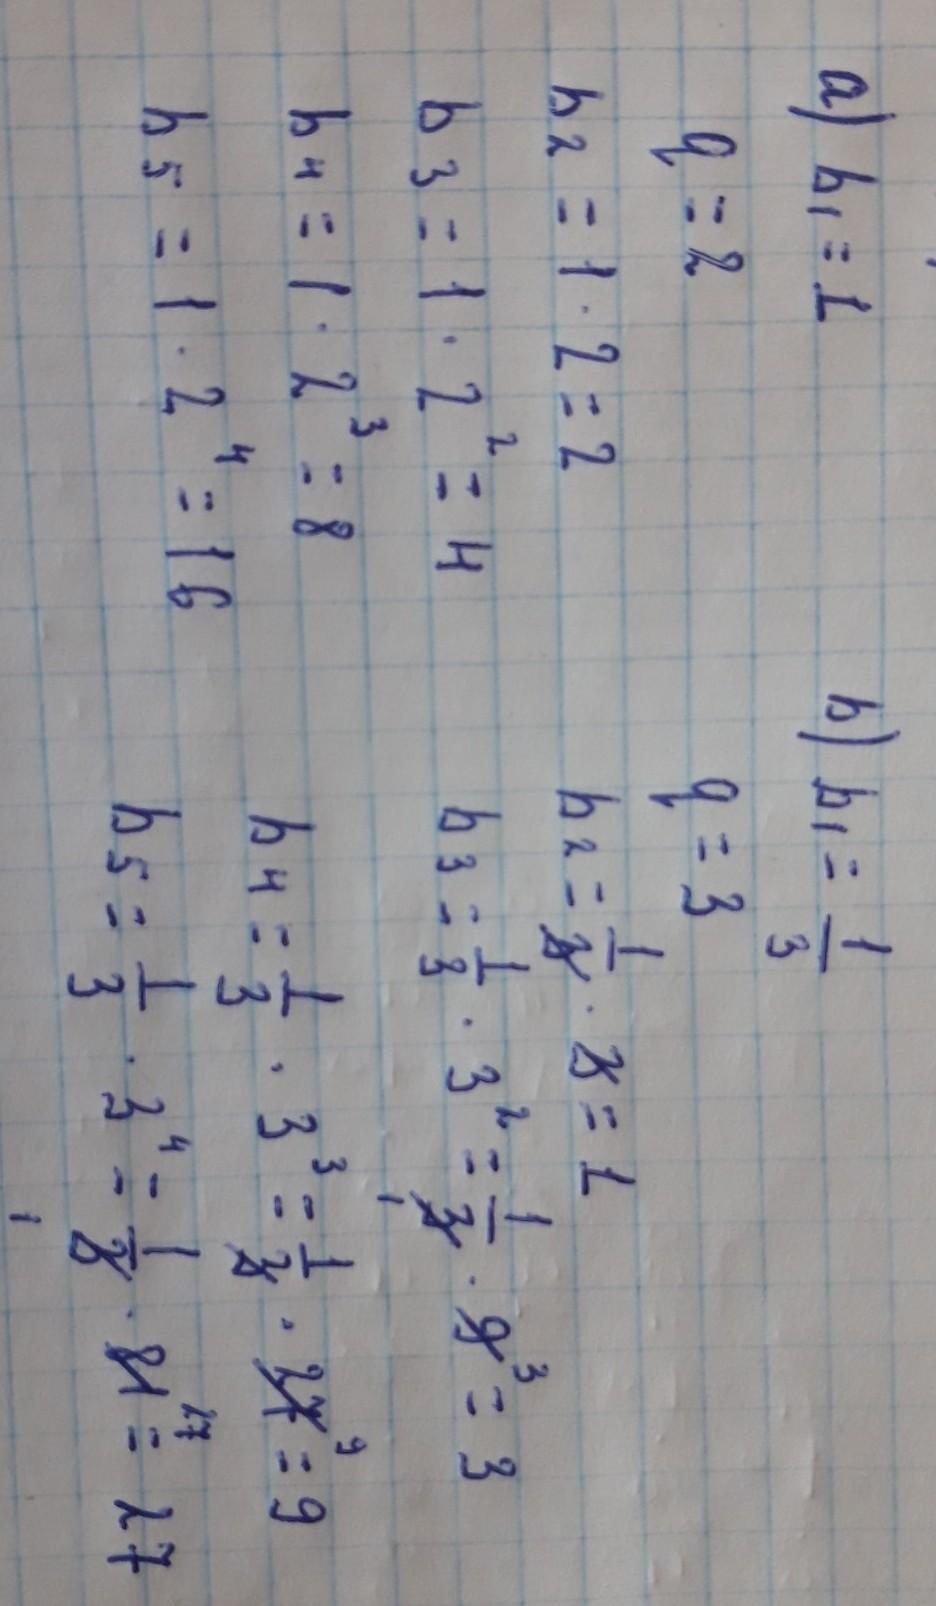 a) b₁ = 1
q = 2
b₂ = 1 · 2 = 2
b₃ = 1 · 2² = 4
b₄ = 1 · 2³ = 8
b₅ = 1 · 2⁴ = 16
b) b₁ = 1/3
q = 3
b₂ = 1/3 · 3 = 1
b₃ = 1/3 · 3² = 1/3 · 9 = 3
b₄ = 1/3 · 3³ = 1/3 · 27 = 9
b₅ = 1/3 · 3⁴ = 1/3 · 81 = 27